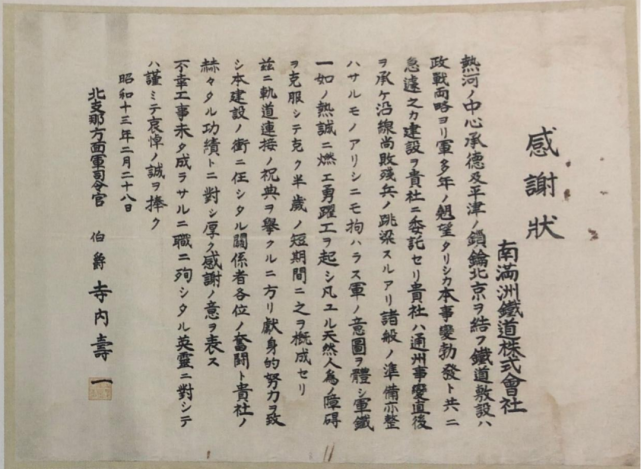 感謝狀
南滿洲鐵道株式會社
熱河ノ中心承德及平津ノ鎖鑰北京ヲ結フ鐵道敷設ハ
政戰両略ヨリ軍多年ノ翹望タリシカ本事變勃發ト共ニ
急遽之カ建設ヲ貴社ニ委託セリ貴社ハ通州事變直後
ヲ承ケ沿線尚敗殘兵ノ跳梁スルアリ諸般ノ準備亦整
ハサルモノアリシニモ拘ハラス軍ノ意圖ヲ體シ軍鐵
一如ノ熱誠ニ燃エ勇躍工ヲ起シ凡ユル天然人為ノ障碍
ヲ克服シテ克ク半歲ノ短期間ニ之ヲ概成セリ
茲ニ軌道連接ノ祝典ヲ擧クルニ方リ獻身的努力ヲ致
シ本建設ノ衝ニ任シタル關係者各位ノ奮鬪ト貴社ノ
赫々タル功績トニ對シ厚ク感謝ノ意ヲ表ス
不幸工事未タ成ラサルニ職ニ殉シタル英靈ニ對シテ
ハ謹ミテ哀悼ノ誠ヲ捧ク
昭和十三年二月二十八日
北支那方面軍司令官 伯爵 寺内壽一